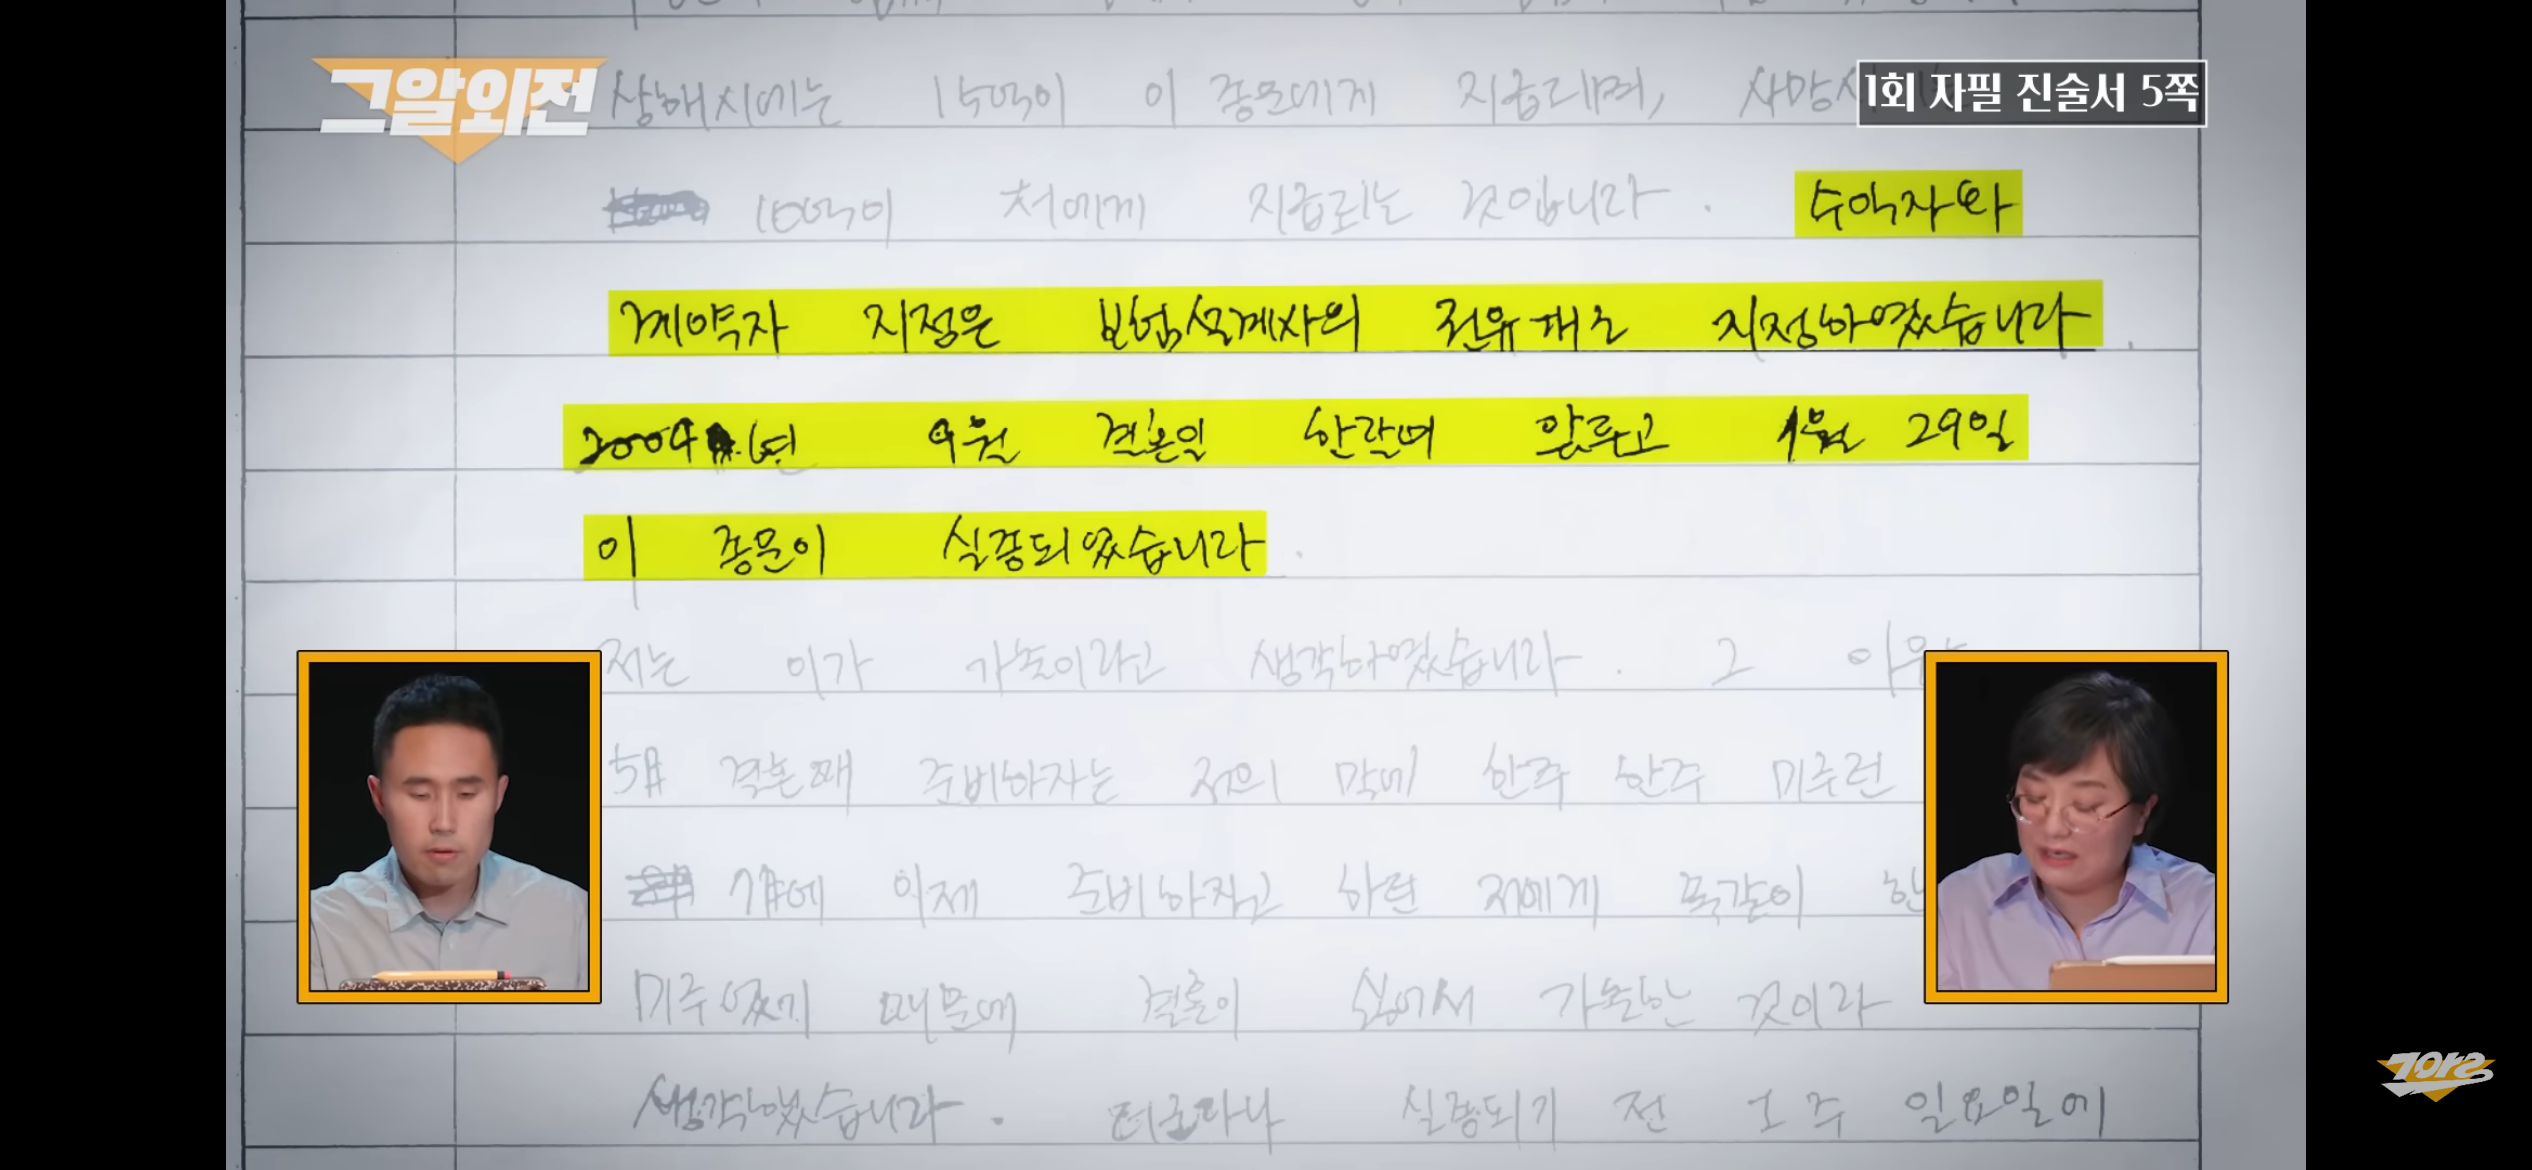 그알외전
1회 자필 진술서 5쪽
상해시에는 15억이 이종문에게 지급되며,
10억이 처에게 지급되는 것입니다. 수익자와
계약자 지정은 보험설계사의 권유대로 지정하였습니다.
2004년 9월 결혼일 한달여 앞두고 1월 29일
이종문이 실종되었습니다.
저는 이가 가출이라고 생각하였습니다. 그
5月 결혼때 준비하자는 저의 말에 한주 한주 미루런
7月에 이제 준비하자고 하런 저에게 똑같이
미루었기 때문에 결혼이 싫어서 가출한 것이라
생각했습니다. 더구다나 실종되기 전 1주 일요일에
그알